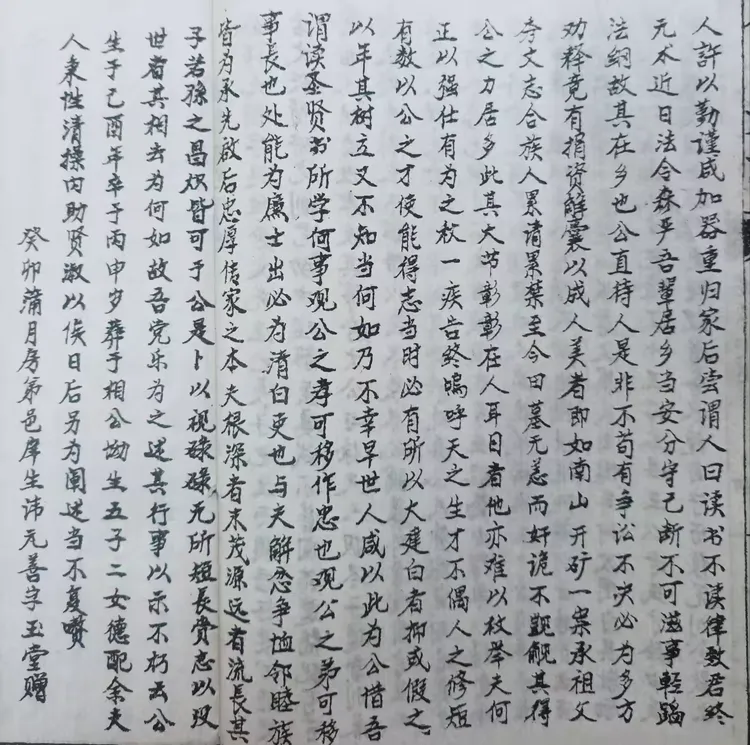 人許以勤谨咸加器重归家后尝谓人曰读书不读律致君终
无术近日法令森严吾輩居乡当安分守己断不可滋事輕蹈
法網故其在乡也公直持人是非不苟有争讼不决必为多方
劝释竟有捐资解囊以成人美者即如南山开矿一案承祖父
寺文志合族人累请累禁至今田墓无恙而奸诡不觊觎其得
公之力居多此其大节彰彰在人耳目者他亦难以枚举夫何
正以强仕有为之秋一疾告終嗚呼天之生才不偶人之修短
有数以公之才使能得志当时必有所以大建白者抑或假之
以年其树立又不知当何如乃不幸早世人咸以此为公惜吾
谓读圣贤书所学何事观公之孝可移作忠也观公之弟可移
事長也处能为廉士出必为清白吏也与夫解忿争恤邻睦族
皆为承先啟后忠厚传家之本夫根深者末茂源远者流長其
子若孫之昌炽皆可于公是卜以视碌碌无所短長赍志以殁
世者其相去为何如故吾党乐为之述其行事以示不朽云公
生于己酉年卒于丙申岁葬于相公坳生五子二女德配余夫
人秉性清操内助贤淑以俟日后另为阐述当不复赘
癸卯蒲月房弟邑庠生讳元善字玉堂赠